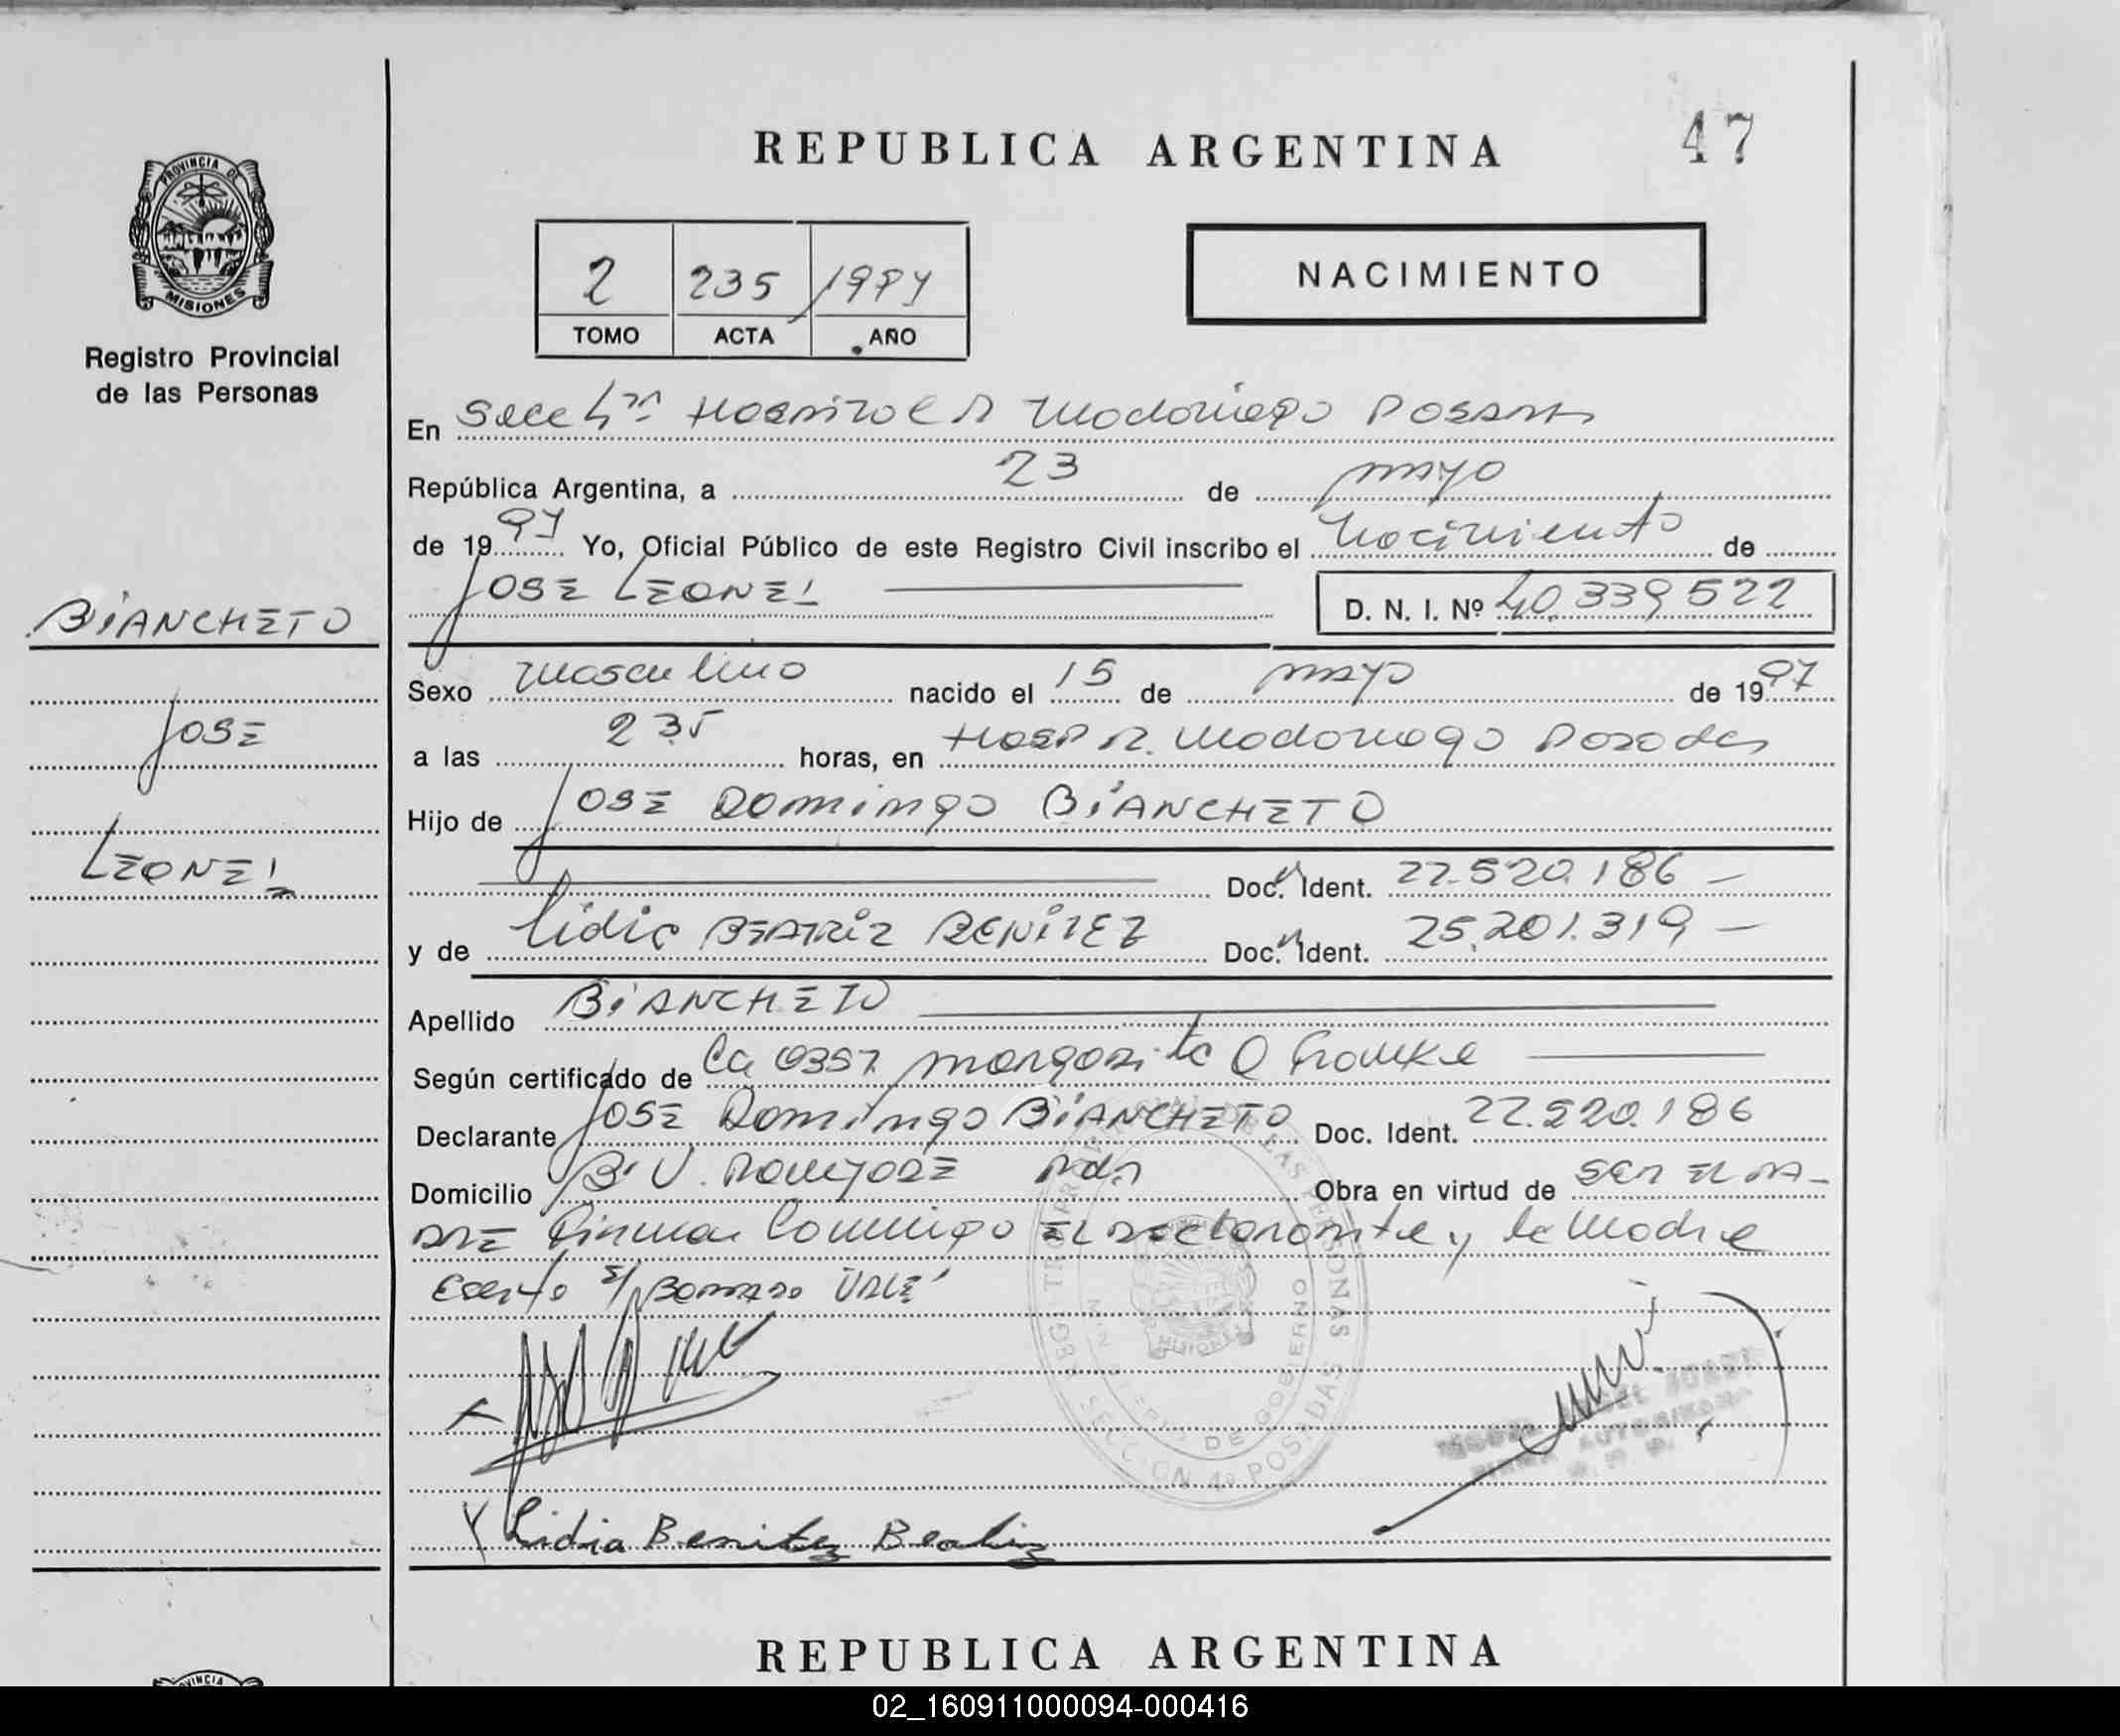 REPUBLICA ARGENTINA
47
PROVINCIA DE
MISIONES
Registro Provincial
de las Personas
2 235 1997
TOMO ACTA AÑO
NACIMIENTO
En Secc 4ta Hospital R Madariaga Posadas
República Argentina, a 23 de mayo
de 1997 Yo, Oficial Público de este Registro Civil inscribo el Nacimiento de
JOSE LEONEL D. N. I. Nº 40.339522
BIANCHETO
JOSE
LEONEL
Sexo Masculino nacido el 15 de mayo de 1997
a las 2 35 horas, en Hosp R. Madariaga Posadas
Hijo de JOSE Domingo BIANCHETO
Doc. Ident. 22.520.186
y de Lidia BEATRIZ BENITEZ Doc. Ident. 25.201.319
Apellido BIANCHETO
Según certificado de la Obst. Margarita Q Franke
Declarante JOSE Domingo BIANCHETO Doc. Ident. 22.520.186
Domicilio Bº U. Pds Obra en virtud de SER EL PA-
DRE Firman Conmigo EL Declarante y la Madre
S/ Borrado VALE
SECCION 4º POSADAS
Lidia Benitez Beatriz
REPUBLICA ARGENTINA
02_160911000094-000416